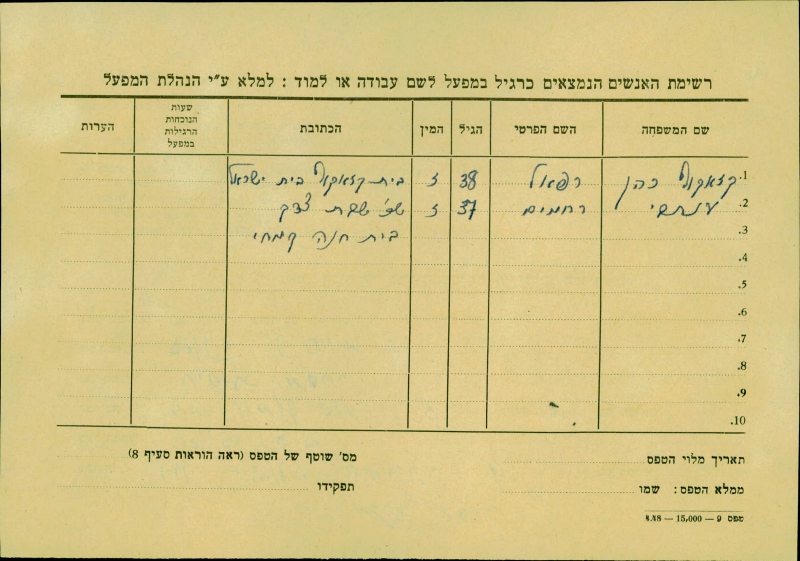 רשימת האנשים הנמצאים כרגיל במפעל לשם עבודה או למוד : למלא ע"י הנהלת המפעל
שם המשפחה השם הפרטי הגיל המין הכתובת שעות הנוכחות הרגילות במפעל הערות
1. קזאקוף כהן רפאל 38 ז בית קזאקוף בית ישראל
2. ענתבי רחמים 37 ז שכ' שבת צדק
3. בית חנה קמחי
4.
5.
6.
7.
8.
9.
10.
תאריך מלוי הטפס מס' שוטף של הטפס (ראה הוראות סעיף 8)
ממלא הטפס : שמו תפקידו
טפס 9 — 15,000 — 4.48